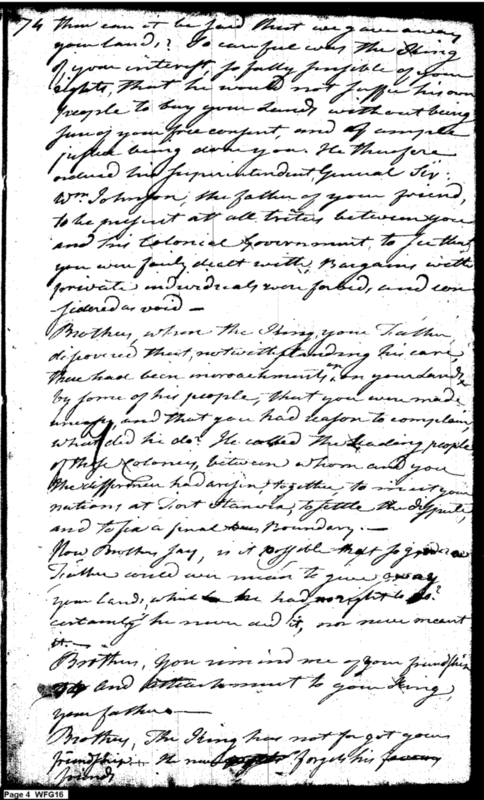 74 then can it be said that we gave away
your land,? So careful was the King
of your interest, so fully sensible of your
rights, that he would not suffer his own
people to buy your Lands without being
sure of your free consent, and of ample
justice being done you. He therefore
ordered his Superintendent General Sir
Wm Johnson, the father of your friend,
to be present at all treties between you
and his Colonial Government, to see that
you were fairly dealt with, Bargains with
private individuals were forbid, and con
sidered as void —
Brothers, when the King, your Father
discovered that, notwithstanding his care,
there had been incroachments on your Lands
by some of his people, that you were made
uneasy, and that you had reason to complain,
what did he do? He called the leading people
of those Colonies, between whom and you
the difference had arisen, together to meet your
nations at Fort Stanwix, to settle the dispute,
and to fix a final Boundary. —
Now Brothers say, is it possible that so good a
Father could ever mean to give away
your Land, which he had no right to do?
certainly he never did it, nor never meant
it. —
Brothers, You remind me of your friendship
and attachment to your King,
your father —
Brothers, The King has not forgot your
friendship. He never forgets his
friends
Page 4 WFG16